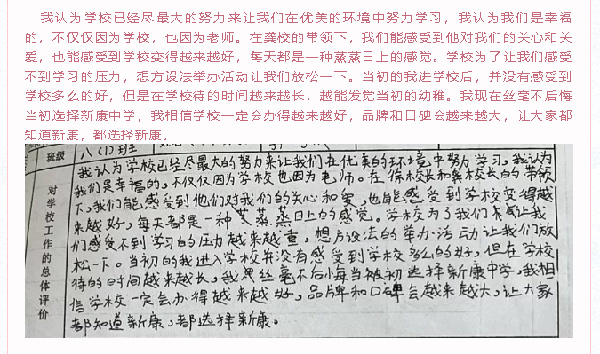 我认为学校已经尽最大的努力来让我们在优美的环境中努力学习，我认为我们是幸福
的，不仅仅因为学校，也因为老师。在龚校的带领下，我们能感受到他对我们的关心和关
爱，也能感受到学校变得越来越好，每天都是一种蒸蒸日上的感觉。学校为了让我们感受
不到学习的压力，想方设法举办活动让我们放松一下。当初的我进学校后，并没有感受到
学校多么的好，但是在学校待的时间越来越长，越能发觉当初的幼稚。我现在丝毫不后悔
当初选择新康中学，我相信学校一定会办得越来越好，品牌和口碑会越来越大，让大家都
知道新康，都选择新康。
班级 八(1)班
对学校工作的总体评价
我认为学校已经尽最大的努力来让我们在优美的环境中努力学习，我认为
我们是幸福的，不仅仅因为学校也因为老师。在徐校长和龚校长的带领
下，我们能感受到他们对我们的关心和爱，也能感受到学校变得越
来越好，每天都是一种蒸蒸日上的感觉。学校为了我们
们感受不到学习的压力越来越重，想方设法的举办活动让我们放
松一下。当初的我进入学校并没有感受到学校多么的好，但在学校
待的时间越来越长，我丝毫不后悔当初选择新康中学，我相
信学校一定会办得越来越好，品牌和口碑会越来越大，让大家
都知道新康，都选择新康。